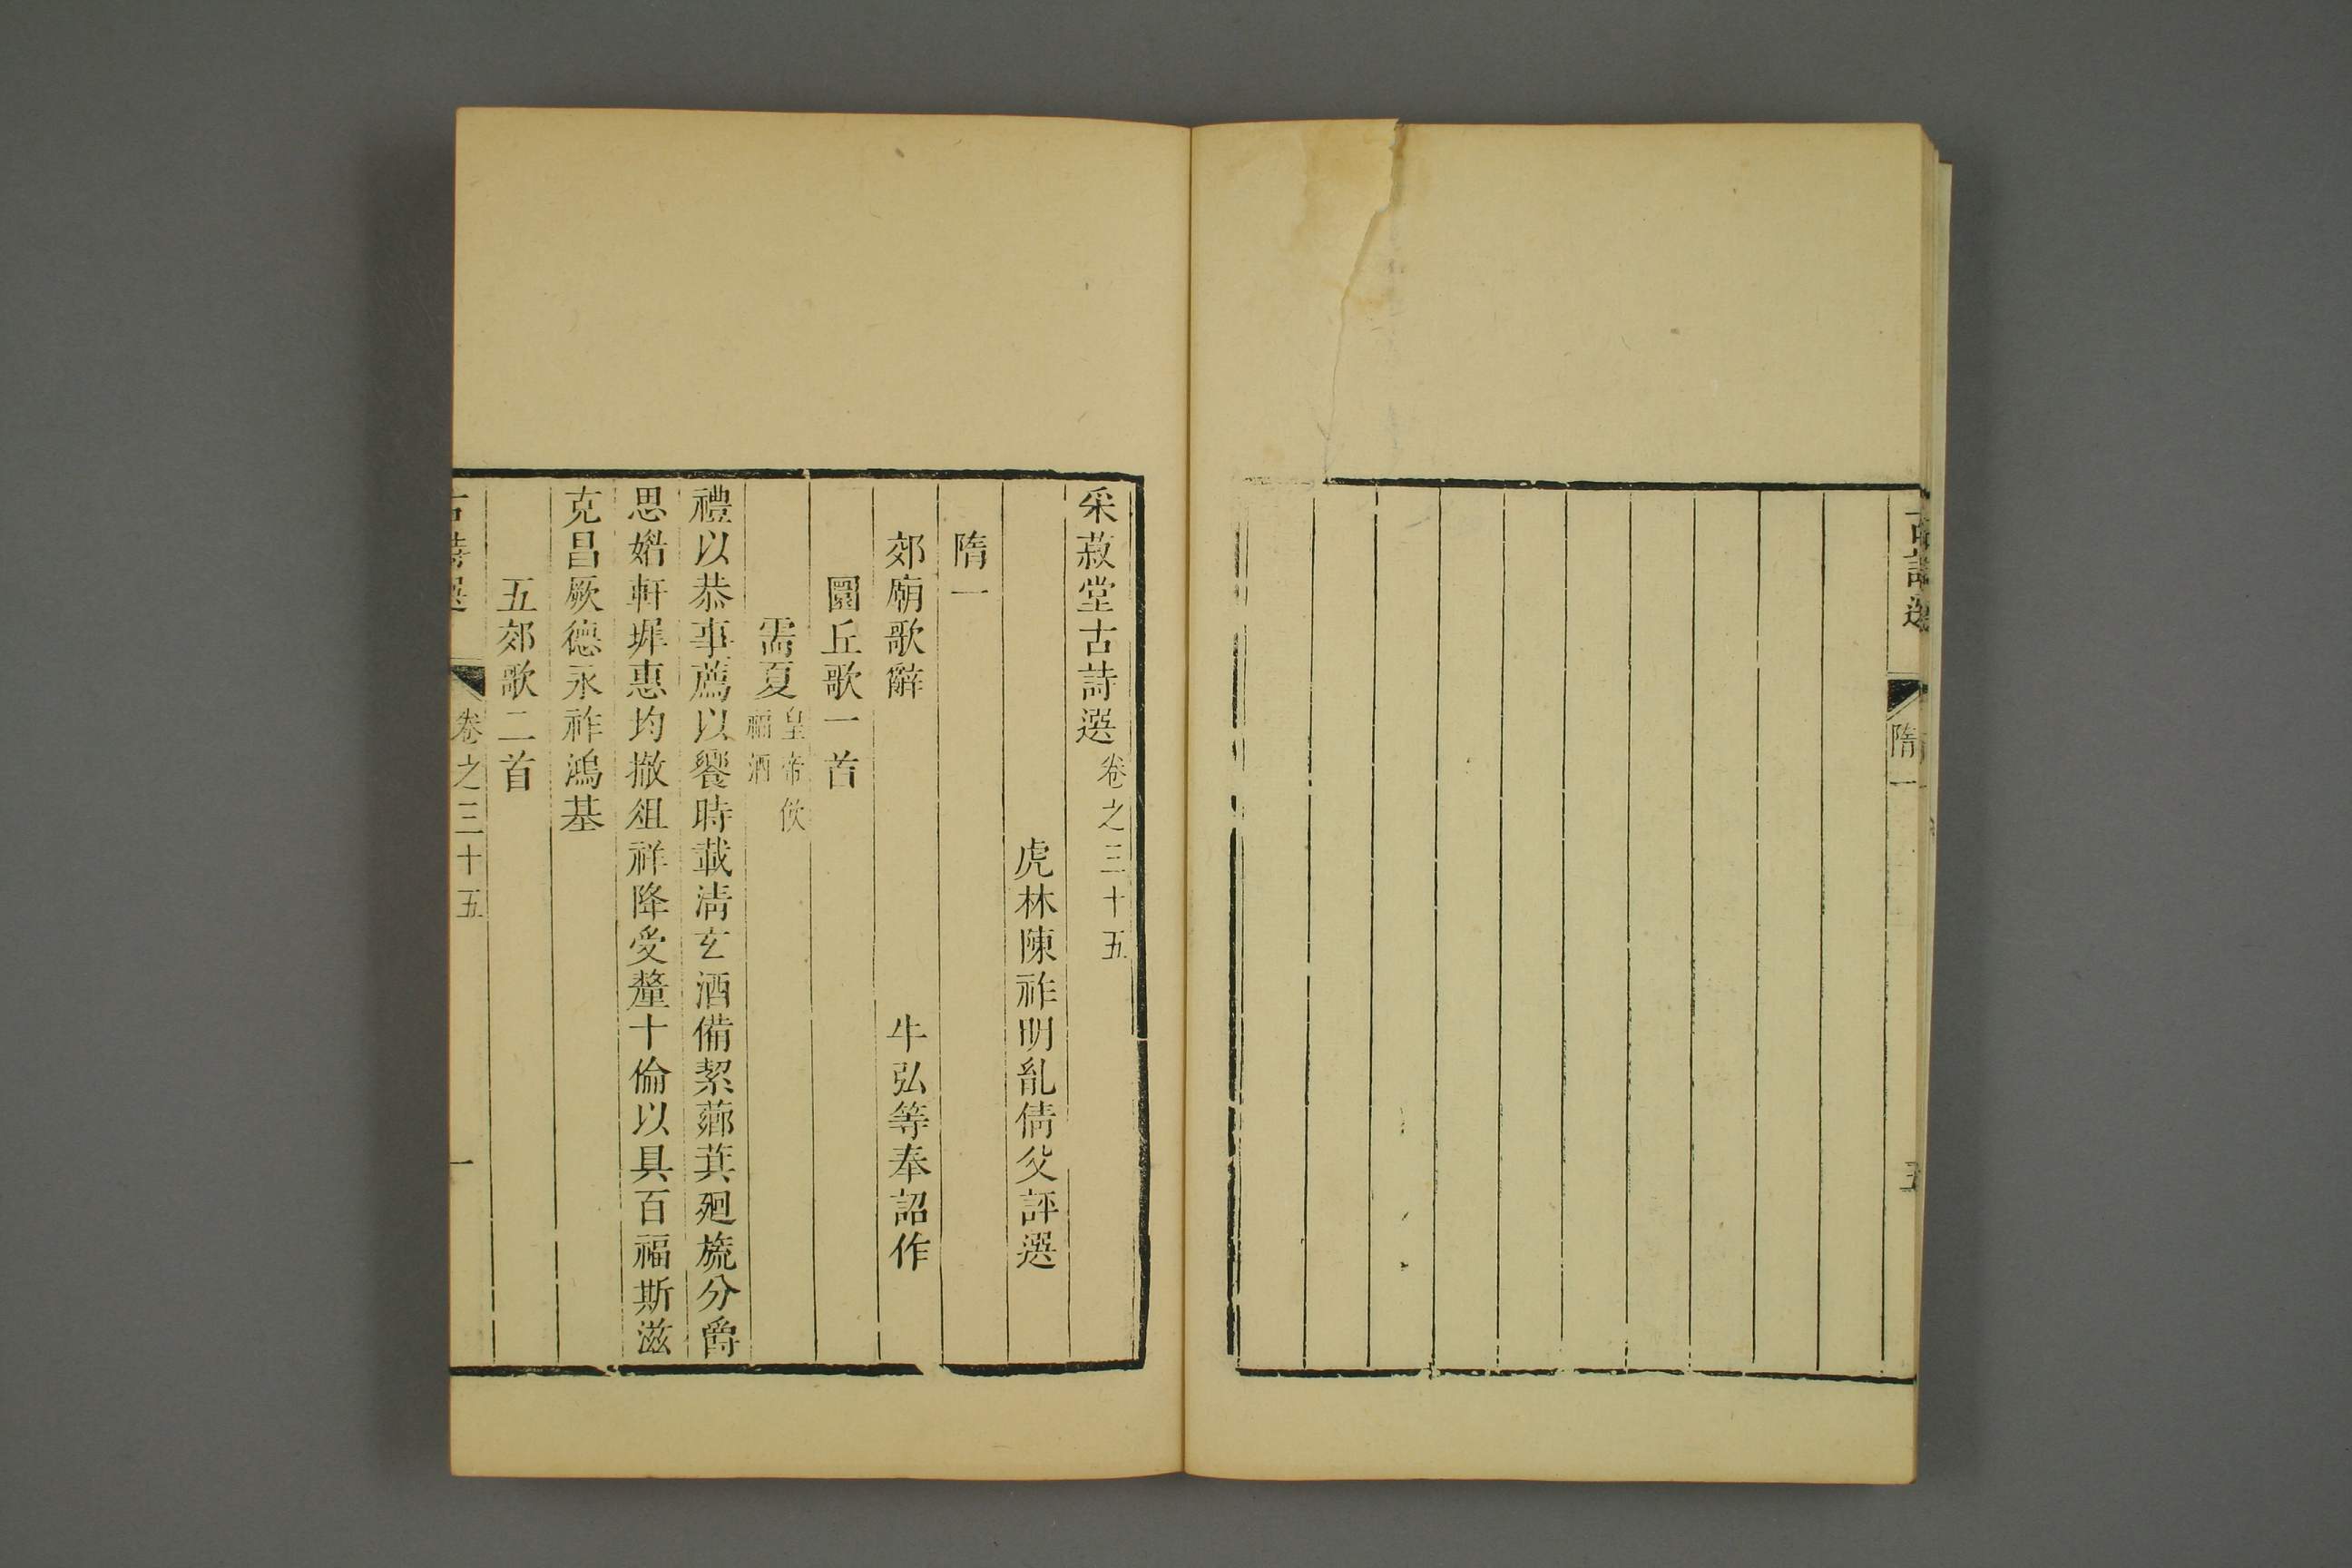 古詩選
隋一
五
采菽堂古詩選卷之三十五
虎林陳祚明胤倩父評選
隋一
郊廟歌辭
牛弘等奉詔作
圜丘歌一首
需夏皇帝飲福酒
禮以恭事薦以饗時載清玄酒備絜薌萁廻旒分爵
思媚軒墀惠均撤俎祥降受釐十倫以具百福斯滋
克昌厥德永祚鴻基
五郊歌二首
古詩選
卷之三十五
一